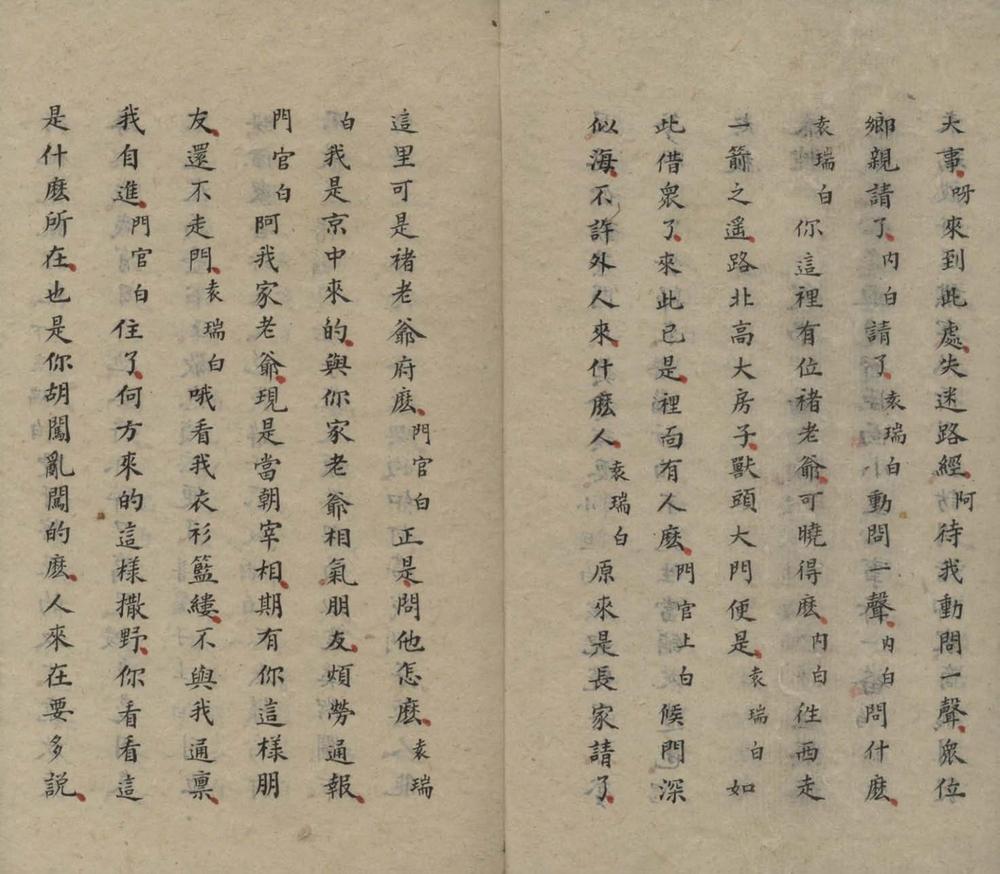 夫事呀來到此處失迷路經阿待我動問一聲眾位
鄉親請了內白請了袁瑞白動問一聲內白問什麽
袁瑞白你這裡有位褚老爺可曉得麽內白徃西走
一箭之遥路北高大房子獸頭大門便是袁瑞白如
此借衆了來此已是裡面有人麽門官上白候門深
似海不許外人來什麽人袁瑞白原來是長家請了
這里可是褚老爺府麽門官白正是問他怎麽袁瑞
白我是京中來的與你家老爺相氣朋友煩勞通報
門官白阿我家老爺現是當朝宰相期有你這樣朋
友還不走門袁瑞白哦看我衣衫籃縷不與我通禀
我自進門官白住了何方來的這樣撒野你看看這
是什麽所在也是你胡闖亂闖的麽人來在要多説